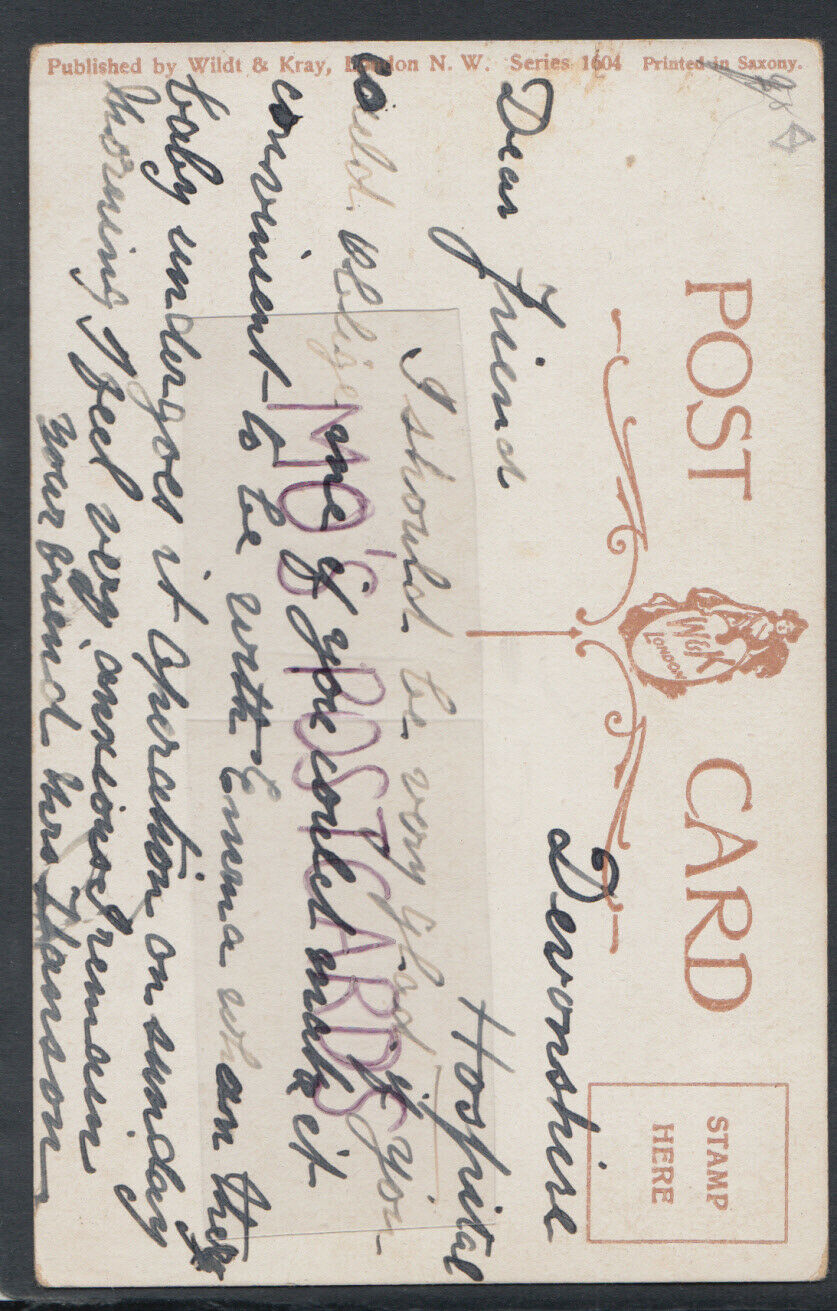 Published by Wildt & Kray, London N. W. Series 1604 Printed in Saxony.
POST CARD
W&K
LONDON
STAMP
HERE
Devonshire
Hospital
Dear Friend
I should be very glad if you
could oblige me if you coulet make it
convinient to be with Emma whan the
baby undergoes it operation on sunday
morning I feel very anxious I remain
your friend Mrs Hanson
MO'S POSTCARDS